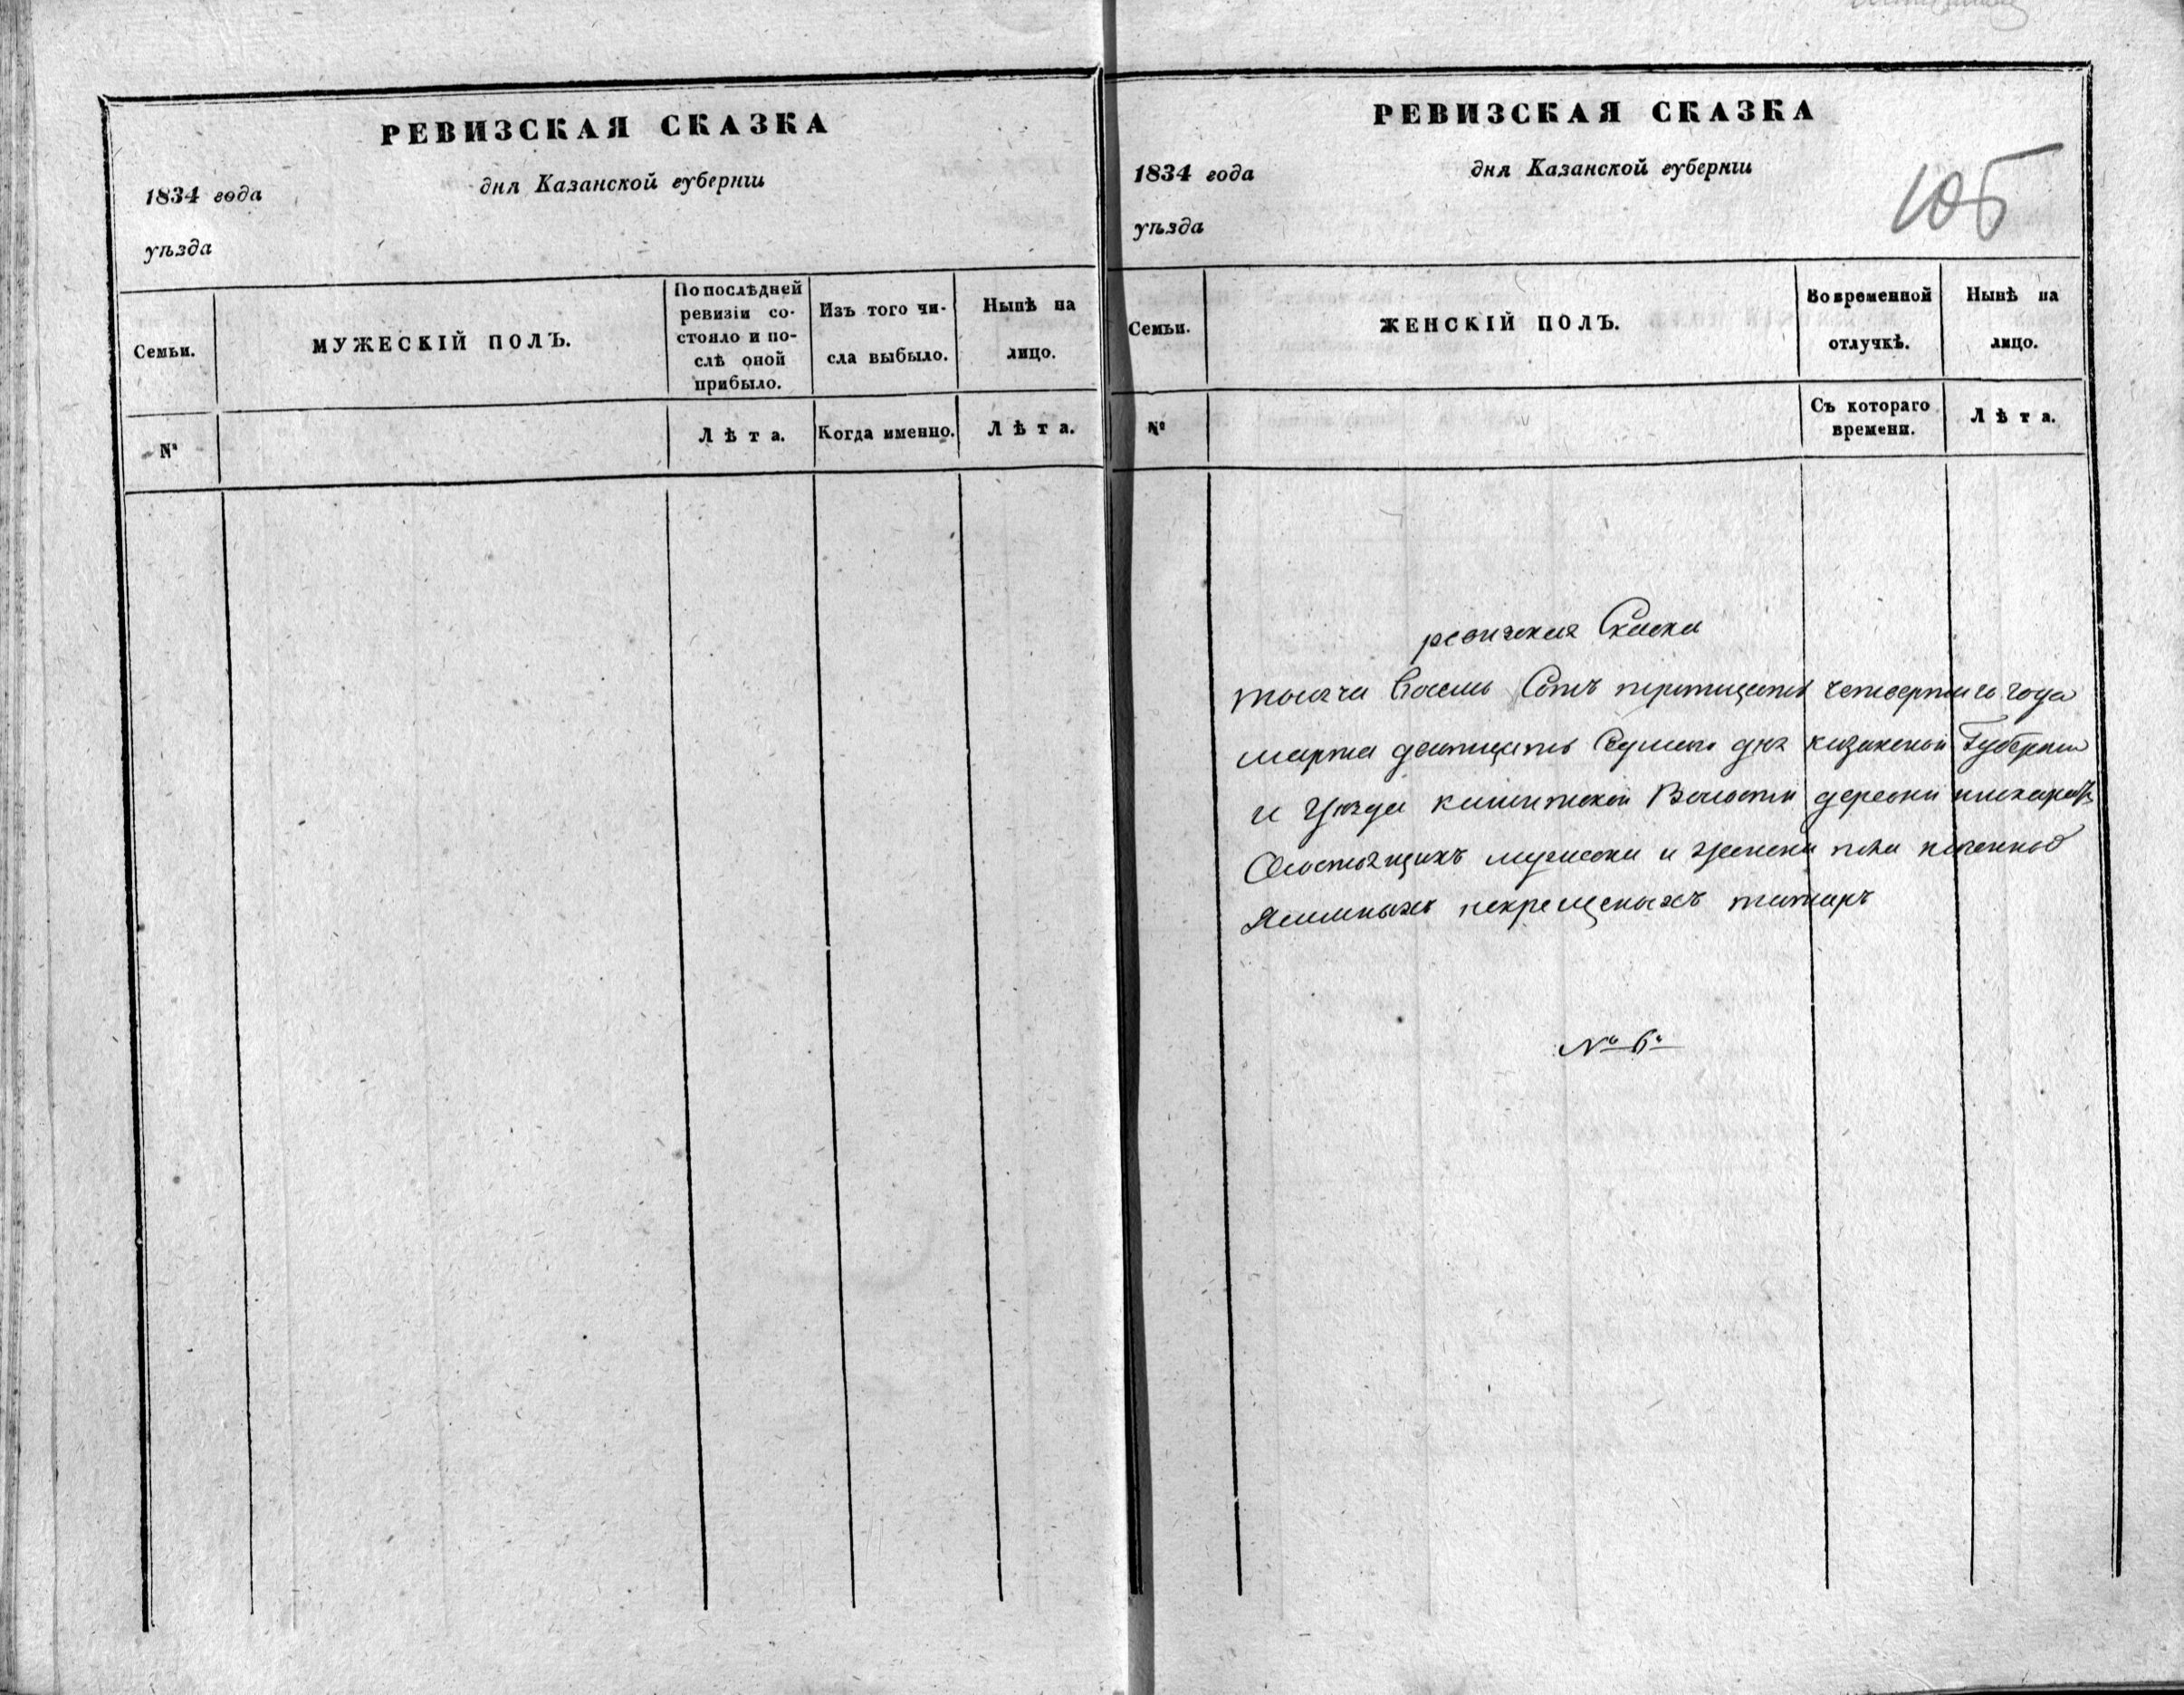 РЕВИЗСКАЯ СКАЗКА
1834 года дня Казанской губернiи
уѣзда
Семьи.
МУЖЕСКIЙ ПОЛЪ.
По послѣдней
ревизiи со-
стояло и по-
слѣ оной
прибыло.
Изъ того чи-
сла выбыло.
Нынѣ на
лицо.
№
Лѣта.
Когда именно.
Лѣта.
РЕВИЗСКАЯ СКАЗКА
1834 года дня Казанской губернiи
105
уѣзда
Семьи.
ЖЕНСКIЙ ПОЛЪ.
Во временной
отлучкѣ.
Нынѣ на
лицо.
№
Съ котораго
времени.
Лѣта.
ревижкая Скаска
тысяча Восемь Сотъ тритцать четвертаго года
марта дватцать Седмаго дня казанской Губернии
и Уезда Волости деревни
Состоящихъ мужеска и женска пола
некрещеныхъ татаръ
№ 6